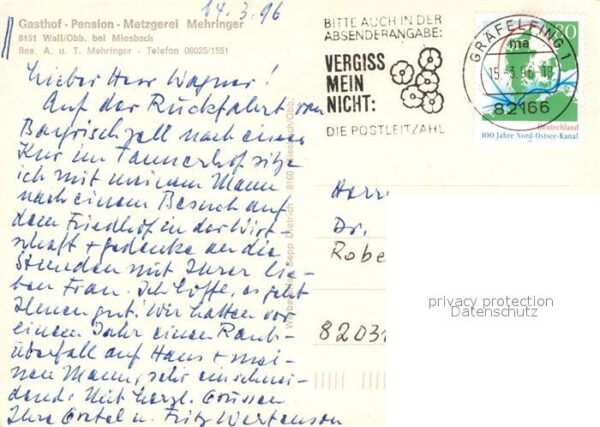 14.3.96
Gasthof - Pension - Metzgerei Mehringer
8151 Wall/Obb. bei Miesbach
Bes. A. u. T. Mehringer - Telefon 08025/1551
Lieber Herr Wagner!
Auf der Rückfahrt von
Bayrischzell nach einer
Kur im Tannerhof sitze
ich mit meinem Mann
nach einem Besuch auf
dem Friedhof in der Wirt-
schaft + gedenke an die
Stunden mit Ihrer lie-
ben Frau. Ich hoffe, es geht
Ihnen gut! Wir hatten vor
einem Jahr einen Raub-
überfall auf Haus + mei-
nen Mann, sehr einschnei-
dend. Mit herzl. Grüssen
Ihre Gretel u. Fritz
BITTE AUCH IN DER
ABSENDERANGABE:
VERGISS
MEIN
NICHT:
DIE POSTLEITZAHL
GRÄFELFING 1
ma
82166
80
Deutschland
100 Jahre Nord-Ostsee-Kanal
Sepp Dietrich 8160 Miesbach/Obb.
Herr
Dr.
Robe
82031
privacy protection
Datenschutz